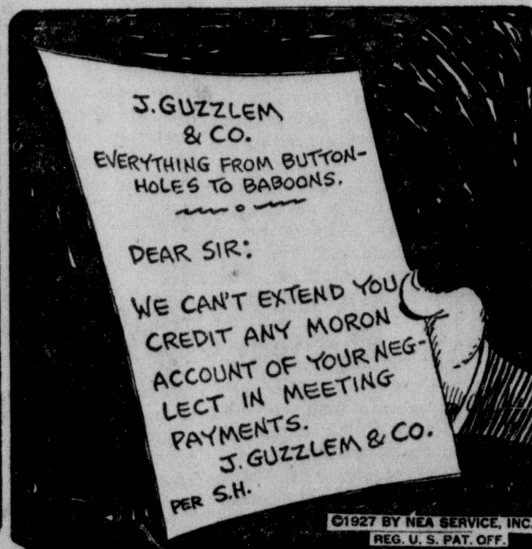 J. GUZZLEM
& CO.
EVERYTHING FROM BUTTON-
HOLES TO BABOONS.
DEAR SIR:
WE CAN'T EXTEND YOU
CREDIT ANY MORON
ACCOUNT OF YOUR NEG-
LECT IN MEETING
PAYMENTS.
J. GUZZLEM & CO.
PER S.H.
©1927 BY NEA SERVICE, INC.
REG. U. S. PAT. OFF.